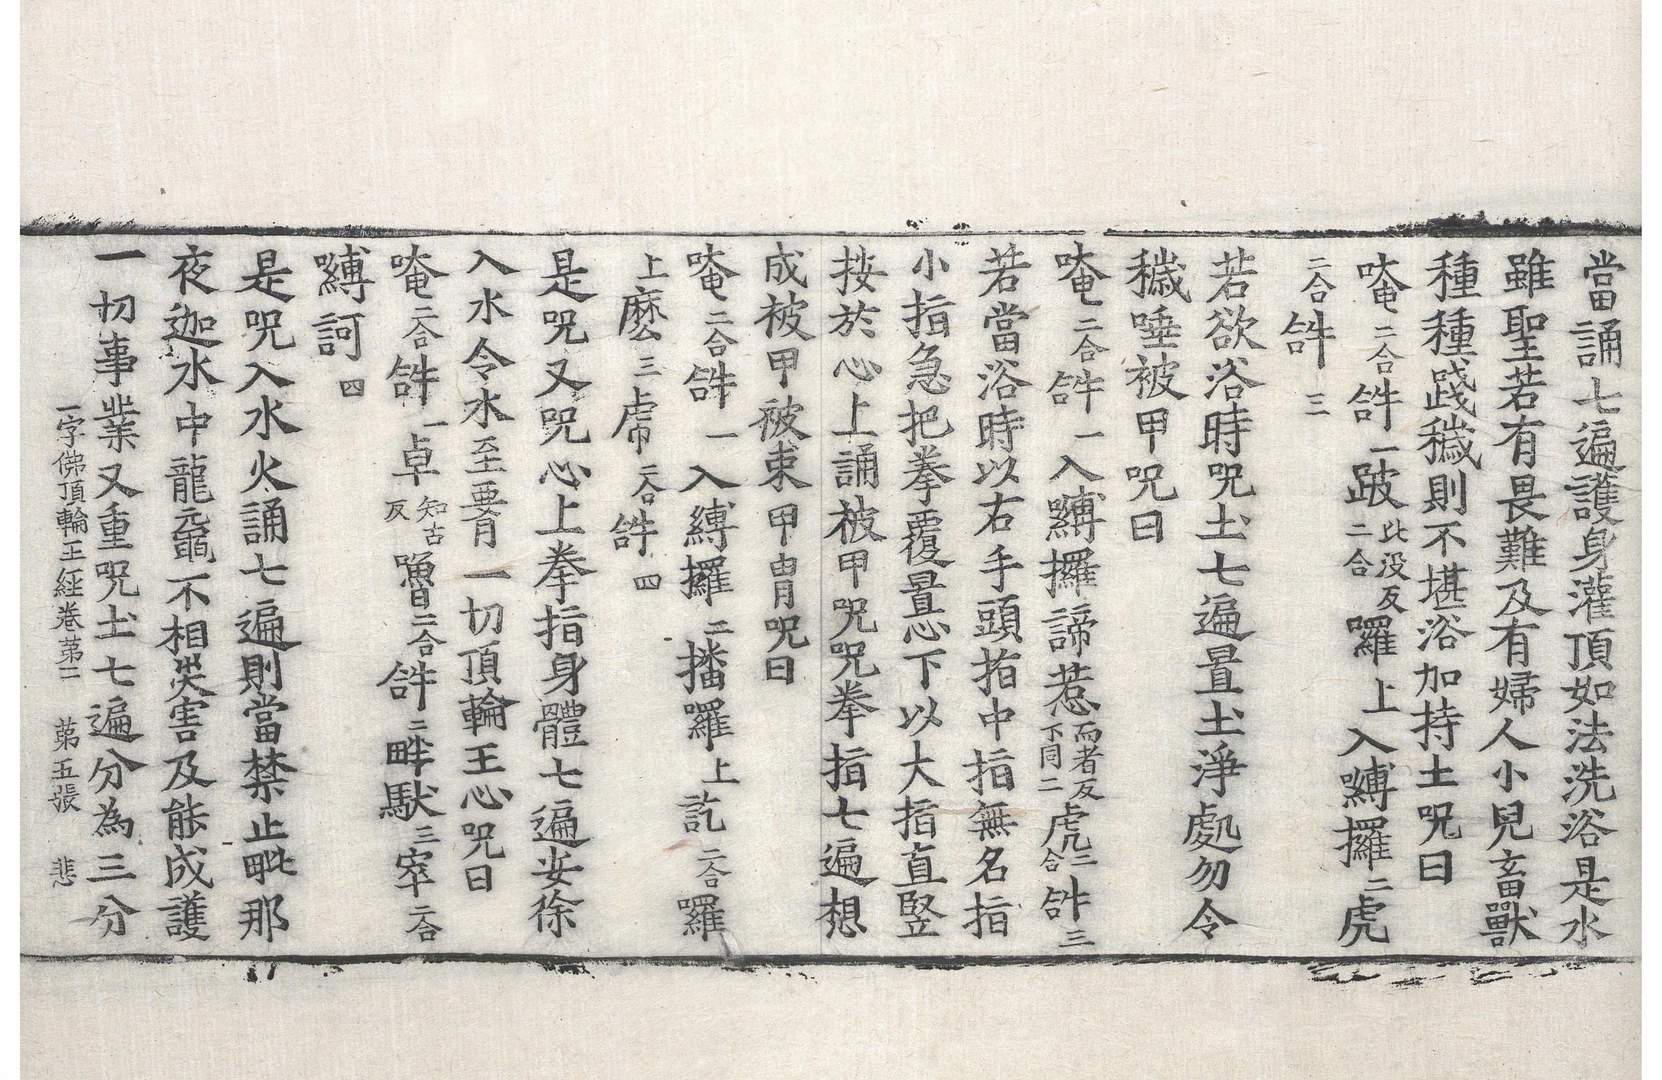 當誦七遍護身灌頂如法洗浴是水
雖聖若有畏難及有婦人小兒畜獸
種種踐穢則不堪浴加持土呪曰
唵二合𤙖一跛比没反二合囉上入縛攞二虎
二合𤙖三
若欲浴時呪土七遍置土淨處勿令
穢唾被甲呪曰
唵二合𤙖一入嚩攞諦惹而者反下同二虎二合𤙖三
若當浴時以右手頭指中指無名指
小指急把拳覆置心下以大指直竪
按於心上誦被甲呪呪拳指七遍想
成被甲被束甲胄呪曰
唵二合𤙖一入縛攞二播囉上訖二合羅
上麼三虏二合𤙖四
是呪又呪心上拳指身體七遍安徐
入水令水至要月一切頂輪王心呪曰
唵二合𤙖一卓知古反嚕二合𤙖二畔馱三窣二合
嚩訶四
是呪入水火誦七遍則當禁止毗那
夜迦水中龍黿不相災害及能成護
一切事業又重呪土七遍分為三分
一字佛頂輪王經卷第二 第五張 悲